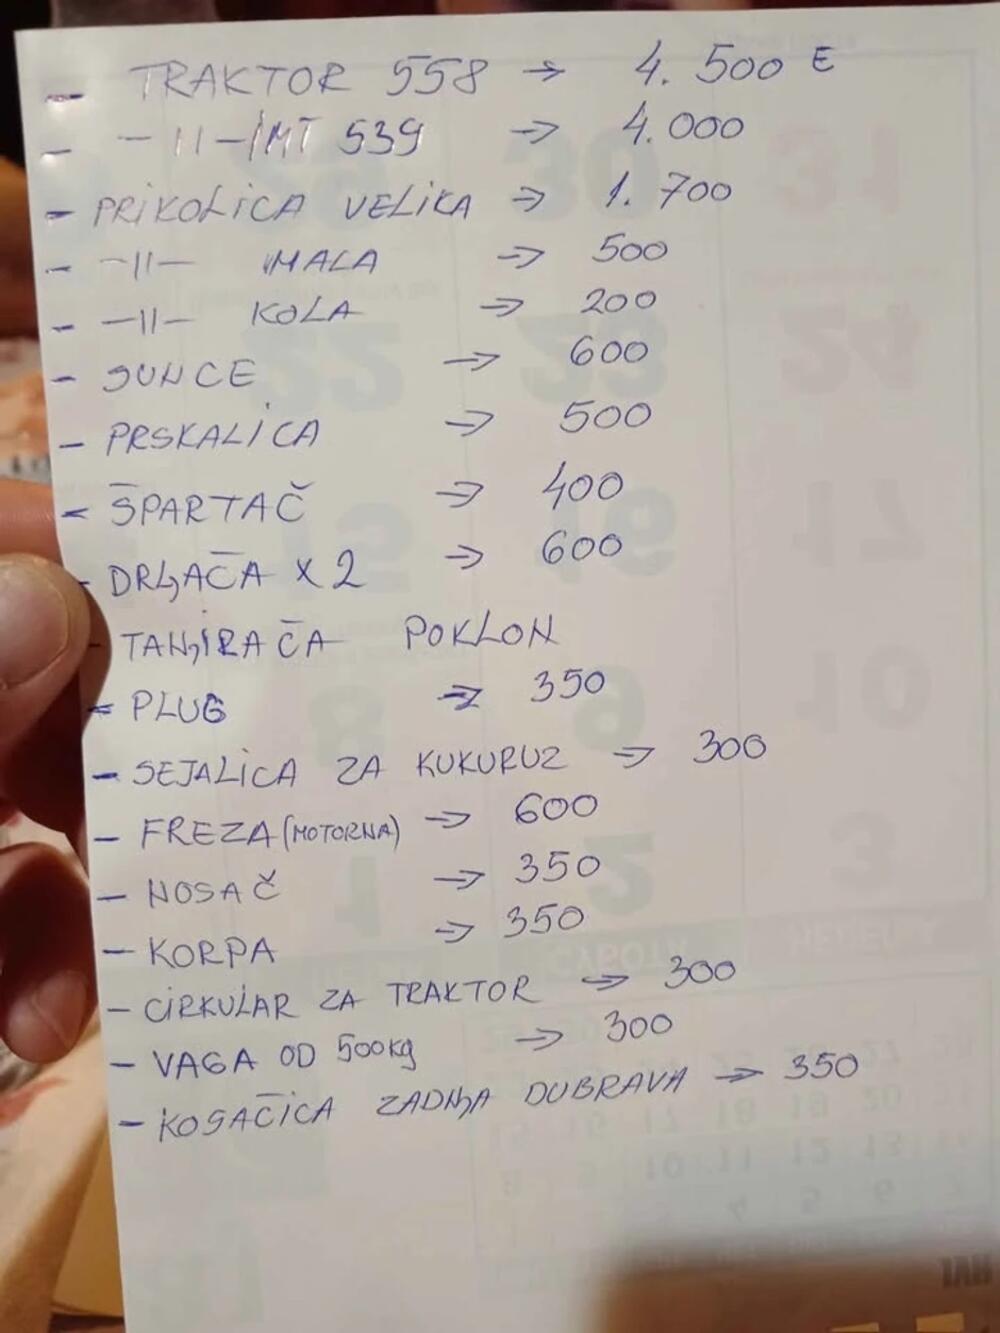 - TRAKTOR 558 → 4.500 E
- -11- IMT 539 → 4.000
- PRIKOLICA VELIKA → 1.700
- -11- MALA → 500
- -11- KOLA → 200
- SUNCE → 600
- PRSKALICA → 500
- ŠPARTAČ → 400
- DRLJAČA X 2 → 600
- TANJIRAČA POKLON
- PLUG → 350
- SEJALICA ZA KUKURUZ → 300
- FREZA (MOTORNA) → 600
- NOSAČ → 350
- KORPA → 350
- CIRKULAR ZA TRAKTOR → 300
- VAGA OD 500kg → 300
- KOSAČICA ZADNJA DUBRAVA → 350